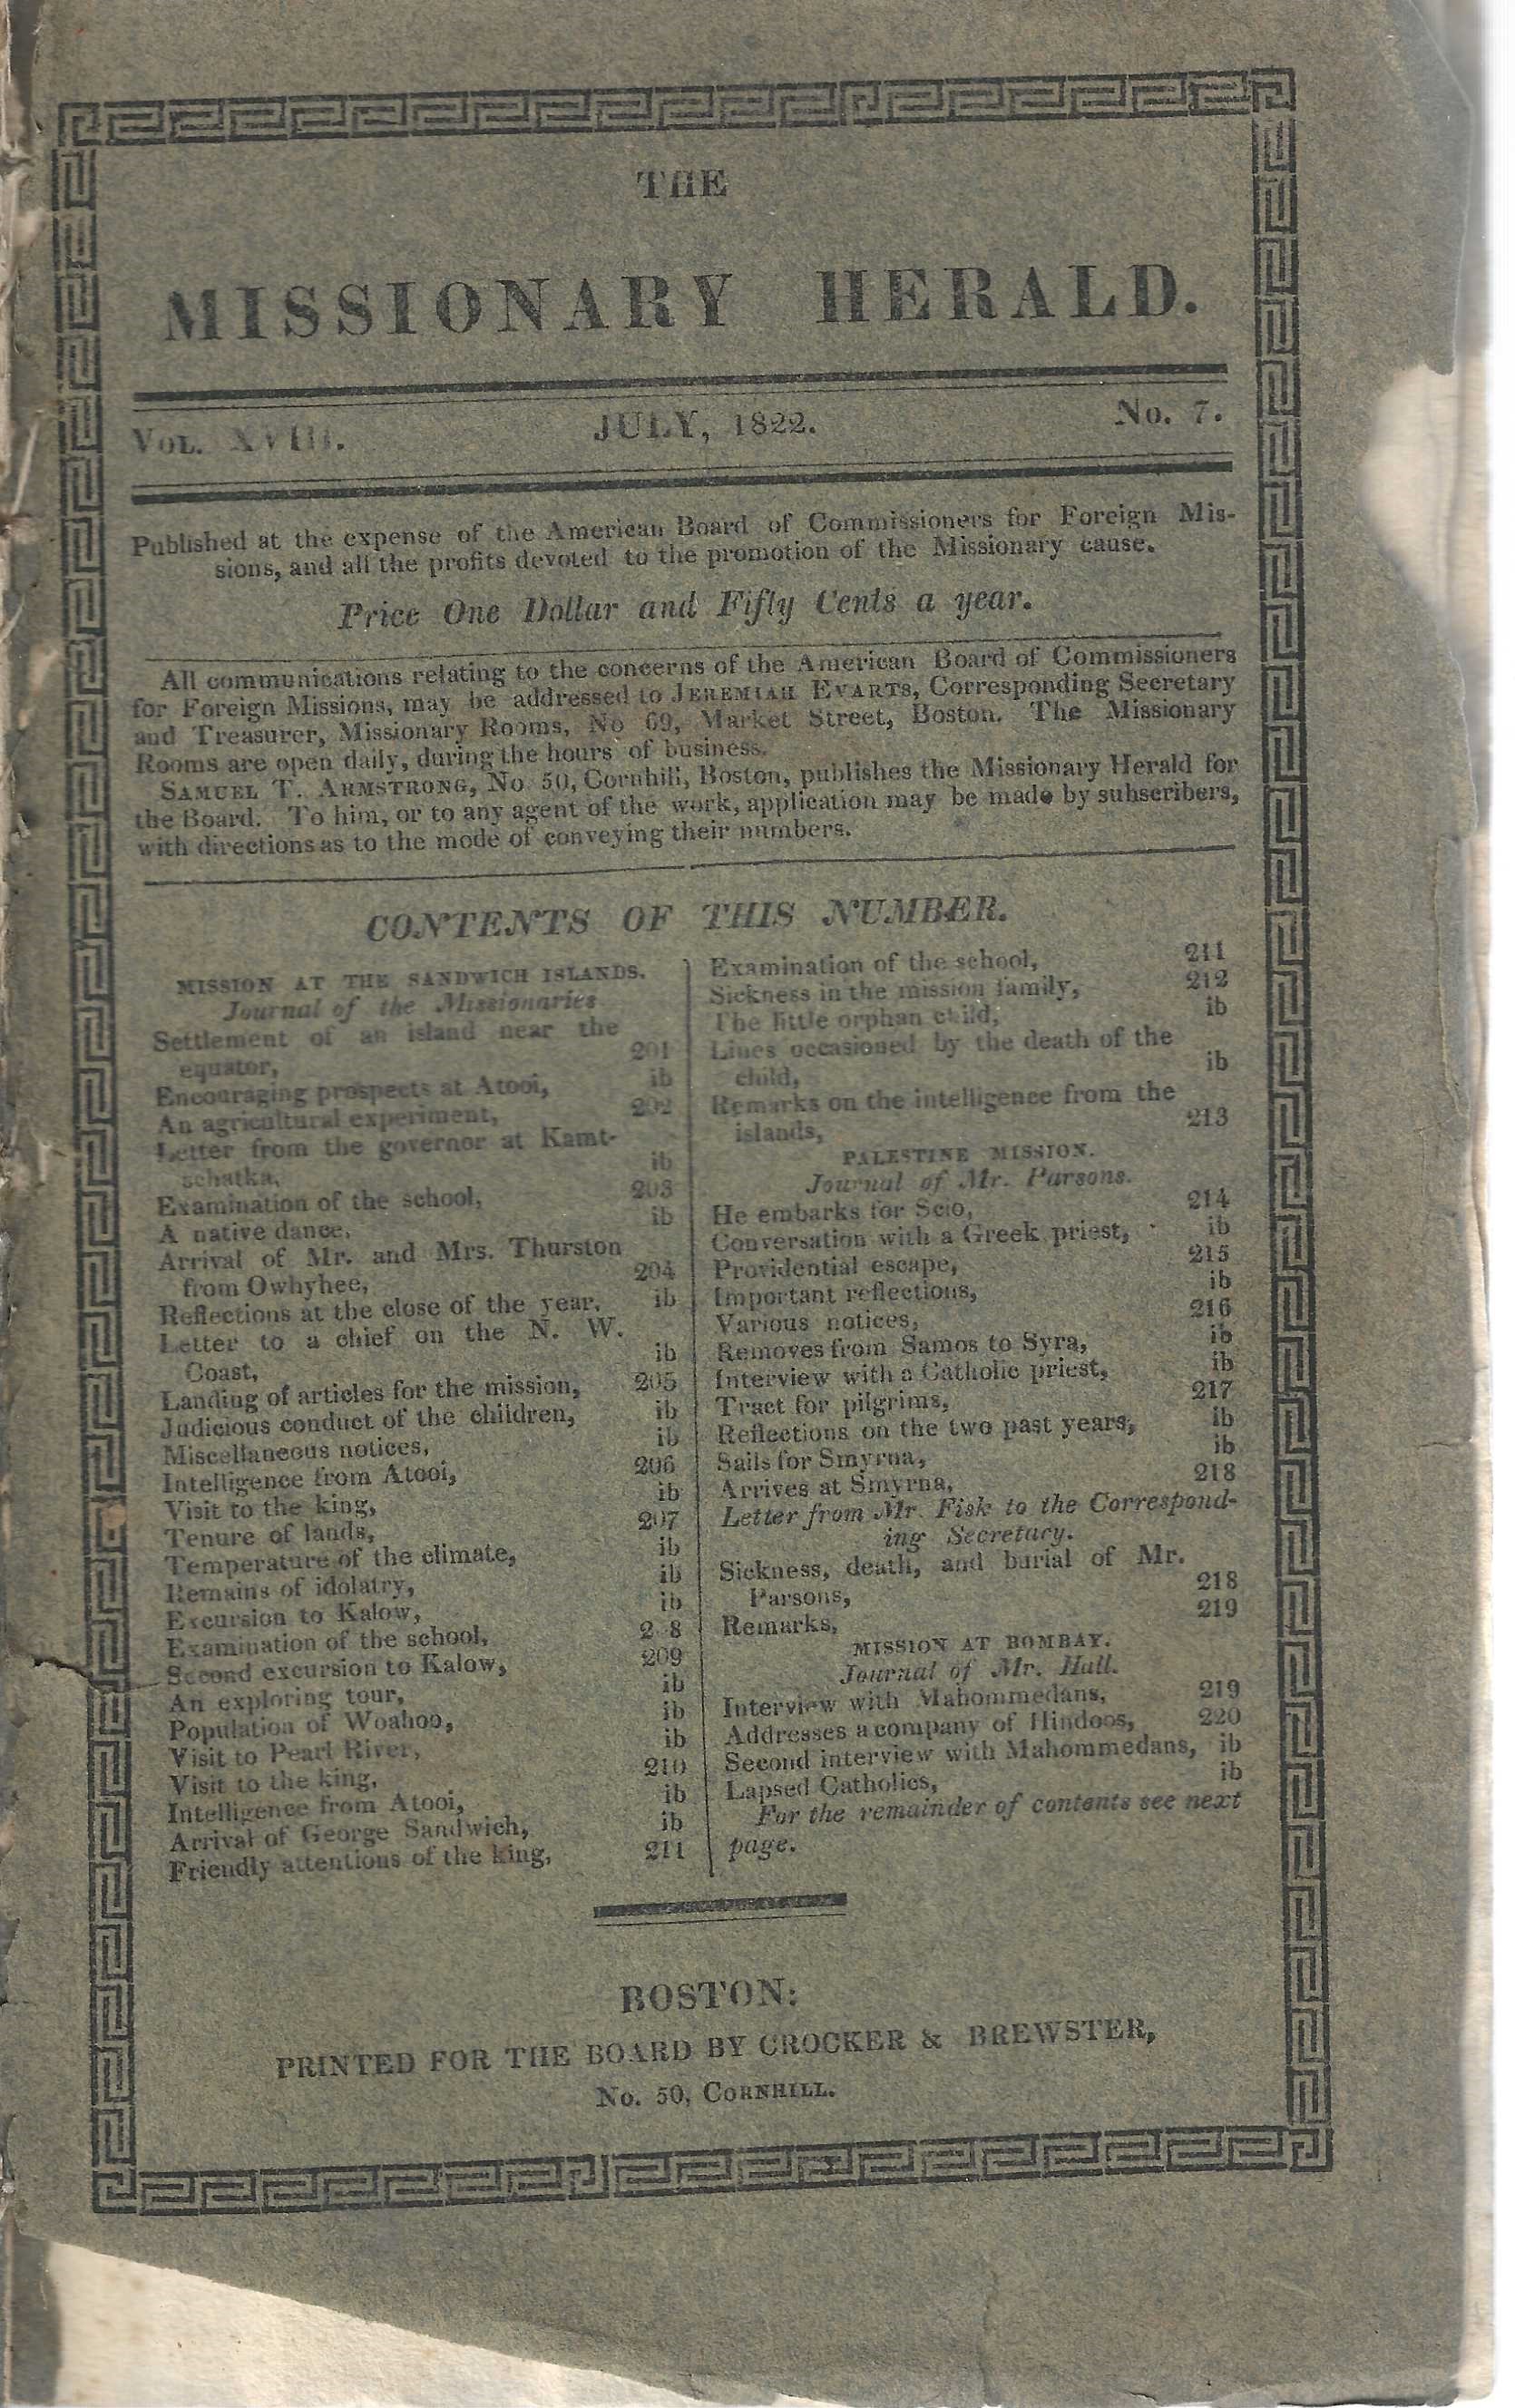 THE
MISSIONARY HERALD.
VOL. XVIII.
JULY, 1822.
No. 7.
Published at the expense of the American Board of Commissioners for Foreign Mis-
sions, and all the profits devoted to the promotion of the Missionary cause.
Price One Dollar and Fifty Cents a year.
All communications relating to the concerns of the American Board of Commissioners
for Foreign Missions, may be addressed to JEREMIAH EVARTS, Corresponding Secretary
and Treasurer, Missionary Rooms, No 69, Market Street, Boston. The Missionary
Rooms are open daily, during the hours of business.
SAMUEL T. ARMSTRONG, No 50, Cornhill, Boston, publishes the Missionary Herald for
the Board. To him, or to any agent of the work, application may be made by subscribers,
with directions as to the mode of conveying their numbers.
CONTENTS OF THIS NUMBER.
MISSION AT THE SANDWICH ISLANDS.
Journal of the Missionaries
Settlement of an island near the
equator, 201
Encouraging prospects at Atooi, ib
An agricultural experiment, 202
Letter from the governor at Kamt-
schatka, ib
Examination of the school, 203
A native dance, ib
Arrival of Mr. and Mrs. Thurston
from Owhyhee, 204
Reflections at the close of the year, ib
Letter to a chief on the N. W.
Coast, ib
Landing of articles for the mission, 205
Judicious conduct of the children, ib
Miscellaneous notices, ib
Intelligence from Atooi, 206
Visit to the king, ib
Tenure of lands, 207
Temperature of the climate, ib
Remains of idolatry, ib
Excursion to Kalow, ib
Examination of the school, 2 8
Second excursion to Kalow, 209
An exploring tour, ib
Population of Woahoo, ib
Visit to Pearl River, ib
Visit to the king, 210
Intelligence from Atooi, ib
Arrival of George Sandwich, ib
Friendly attentions of the king, 211
Examination of the school, 211
Sickness in the mission family, 212
The little orphan child, ib
Lines occasioned by the death of the
child, ib
Remarks on the intelligence from the
islands, 213
PALESTINE MISSION.
Journal of Mr. Parsons.
He embarks for Scio, 214
Conversation with a Greek priest, ib
Providential escape, 215
Important reflections, ib
Various notices, 216
Removes from Samos to Syra, ib
Interview with a Catholic priest, ib
Tract for pilgrims, 217
Reflections on the two past years, ib
Sails for Smyrna, ib
Arrives at Smyrna, 218
Letter from Mr. Fisk to the Correspond-
ing Secretary.
Sickness, death, and burial of Mr.
Parsons, 218
Remarks, 219
MISSION AT BOMBAY.
Journal of Mr. Hall.
Interview with Mahommedans, 219
Addresses a company of Hindoos, 220
Second interview with Mahommedans, ib
Lapsed Catholics, ib
For the remainder of contents see next
page.
BOSTON:
PRINTED FOR THE BOARD BY CROCKER & BREWSTER,
No. 50, CORNHILL.